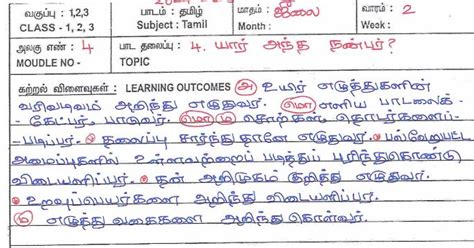 வகுப்பு : 1,2,3 பாடம் : தமிழ் மாதம் : ஜூலை வாரம் : 2
CLASS - 1, 2, 3 Subject : Tamil Month : Week :
அலகு எண் : 4 பாட தலைப்பு : 4. யார் அந்த நண்பர்?
MOUDLE NO - TOPIC
கற்றல் விளைவுகள் : LEARNING OUTCOMES அ உயிர் எழுத்துகளின்
வரிவடிவம் அறிந்து எழுதுவர். எளிய பாடலைக்
கேட்பர், பாடுவர். சொற்கள், தொடர்களைப்
படிப்பர். தலைப்பு சார்ந்து தானே எழுதுவர். பல்வேறுபட்ட
அமைப்புகளில் உள்ளவற்றைப் படித்துப் புரிந்துகொண்டு
விடையளிப்பர். தன் அறிமுகம் குறித்து எழுதுவர்.
உறவுப்பெயர்களை அறிந்து விடையளிப்பர்.
எழுத்து வகைகளை அறிந்து கொள்வர்.